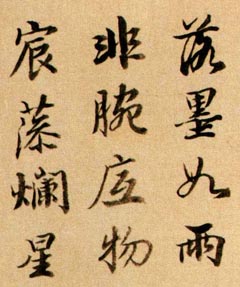 落墨如雨
非腕應物
宸藻爛星